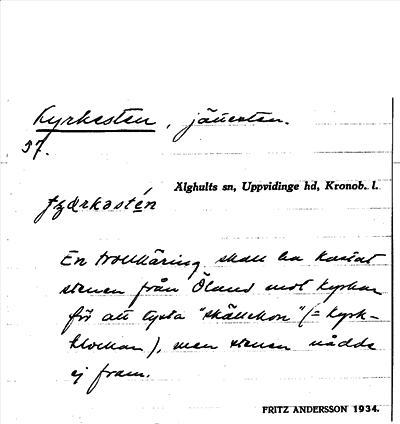 Kyrkesten, jättesten.
57.
Älghults sn, Uppvidinge hd, Kronob. l.
En trollkäring skall ha kastat
stenen från Öland mot kyrkan
för att tysta "skällekon" (= kyrk-
klockan), men stenen nådde
ej fram.
FRITZ ANDERSSON 1934.